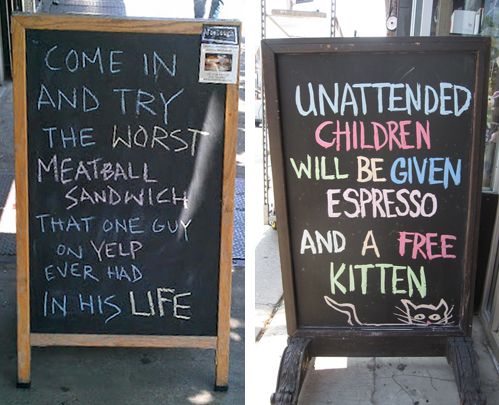 COME IN
AND TRY
THE WORST
MEATBALL
SANDWICH
THAT ONE GUY
ON YELP
EVER HAD
IN HIS LIFE
UNATTENDED
CHILDREN
WILL BE GIVEN
ESPRESSO
AND A FREE
KITTEN